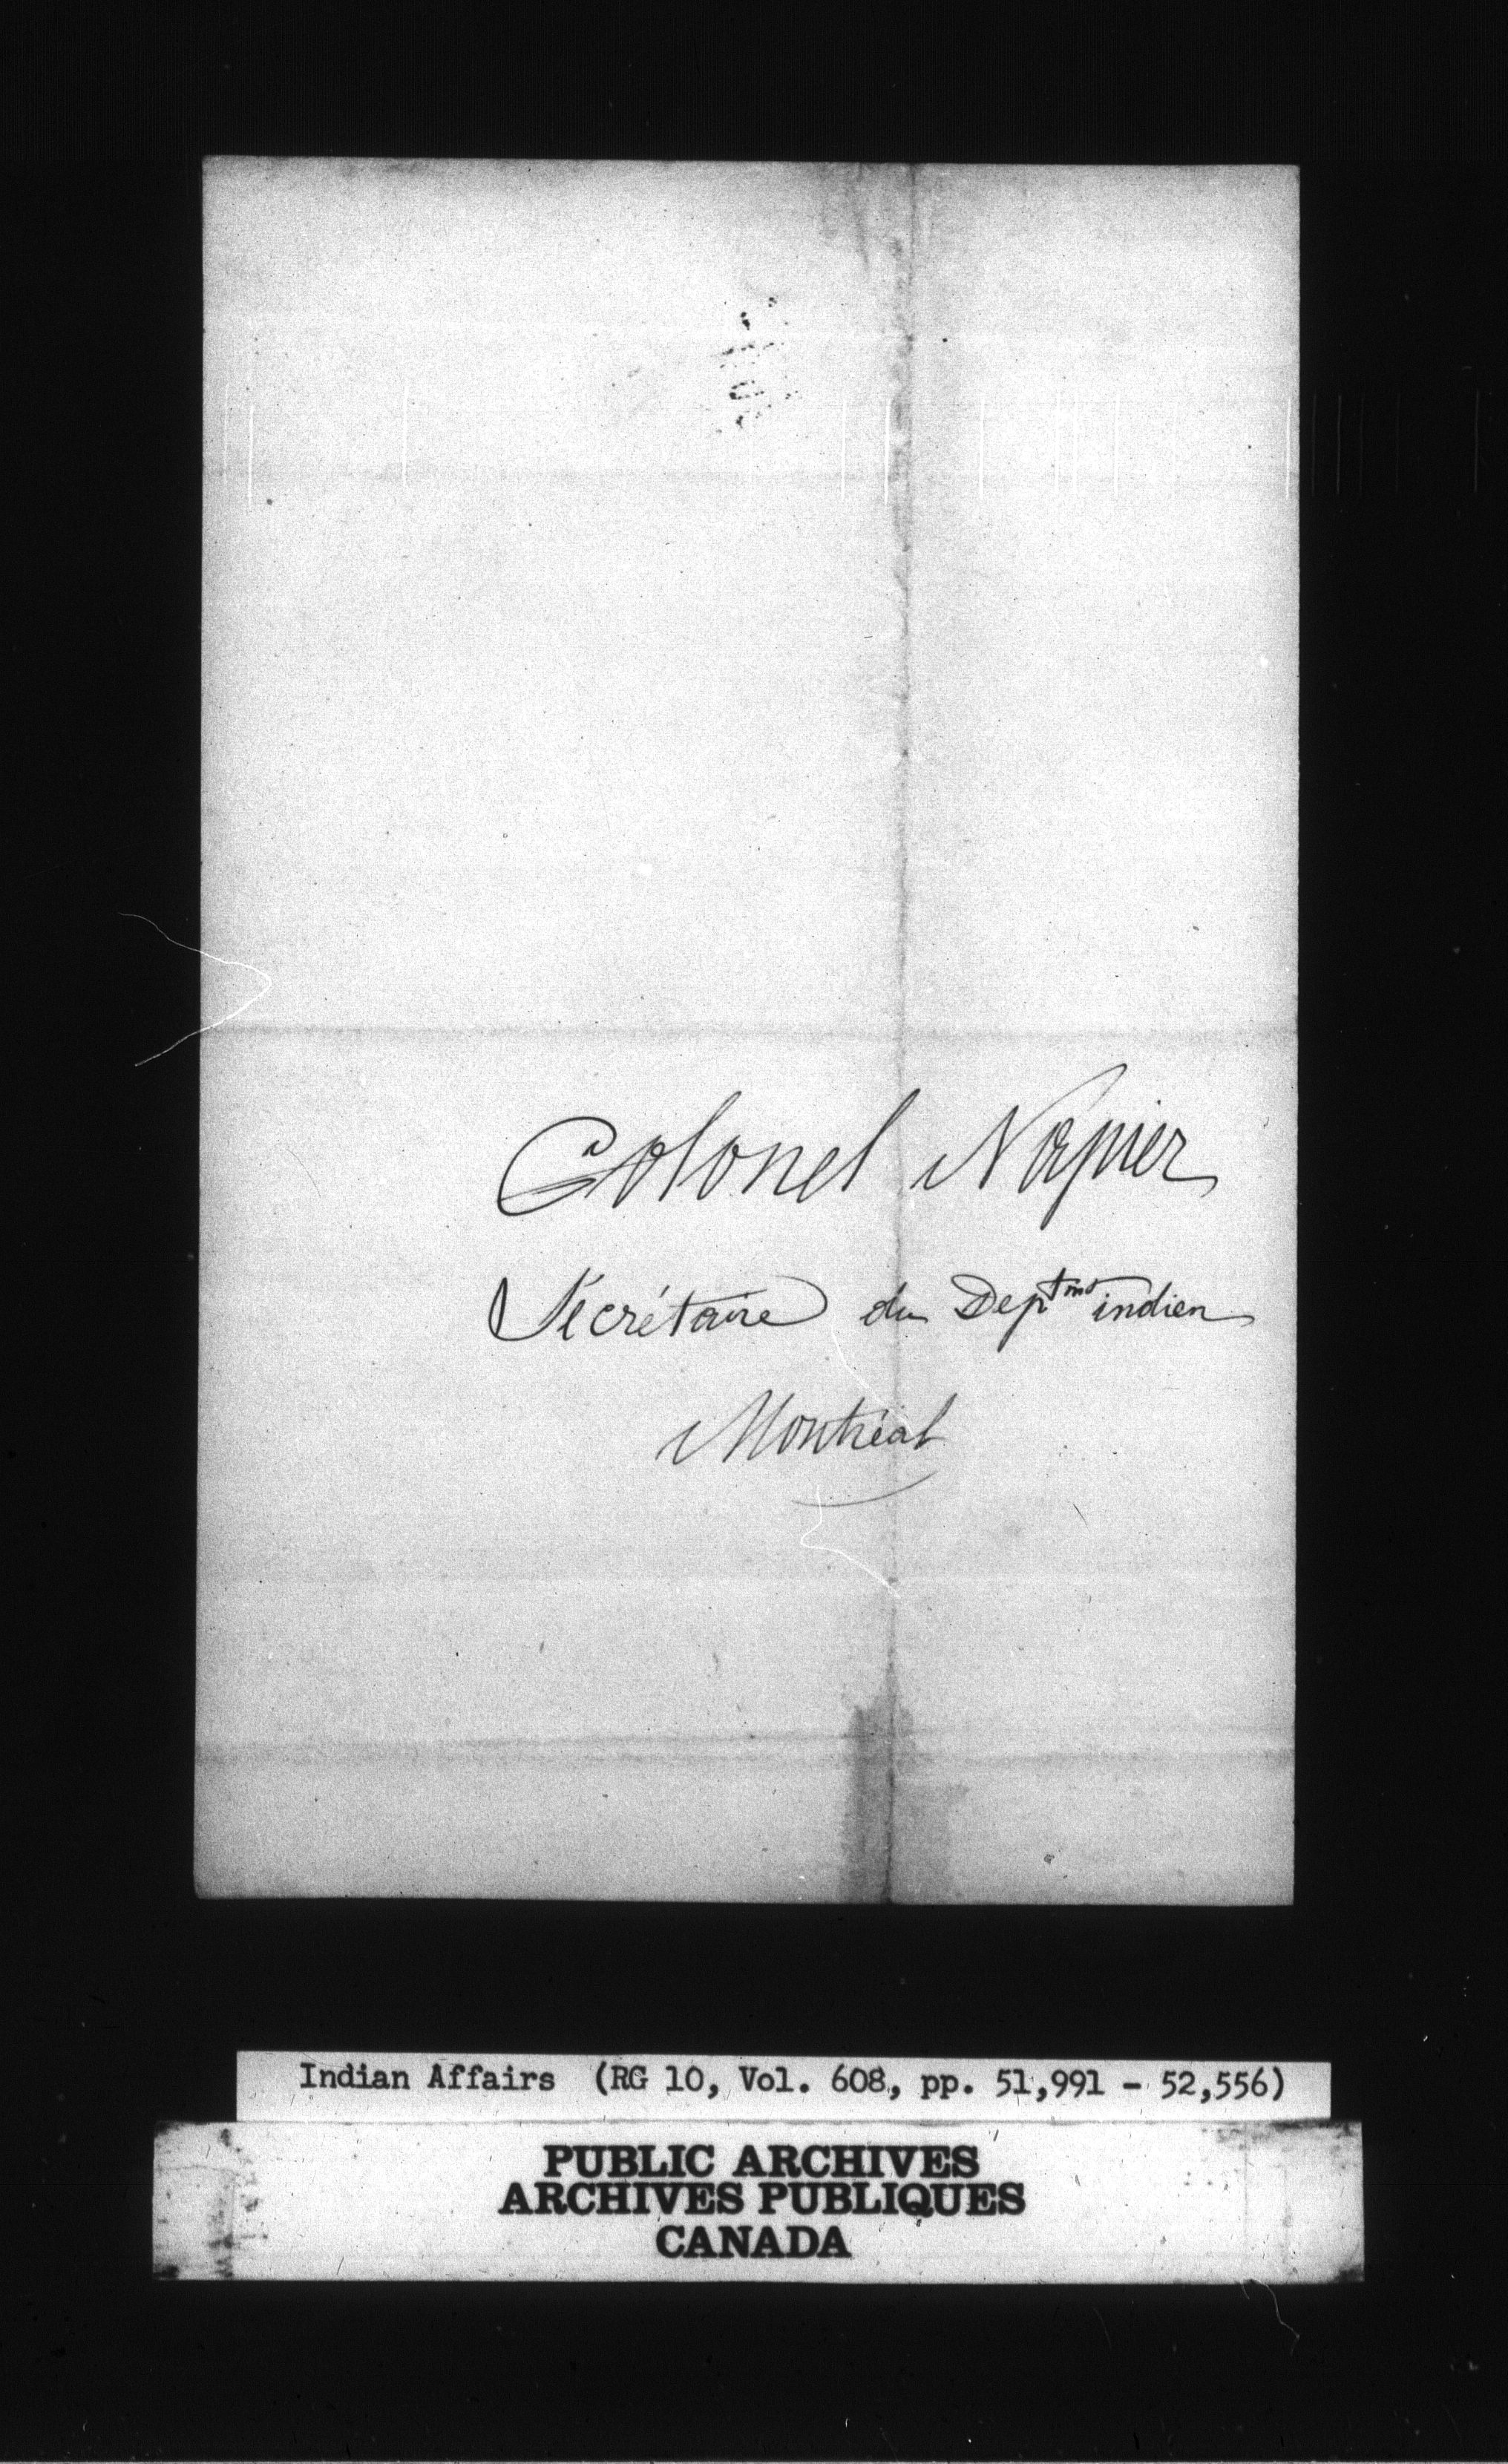 Colonel Napier
Secrétaire du Dept^mt indien
Montréal
Indian Affairs (RG 10, Vol. 608, pp. 51,991 - 52,556)
PUBLIC ARCHIVES
ARCHIVES PUBLIQUES
CANADA